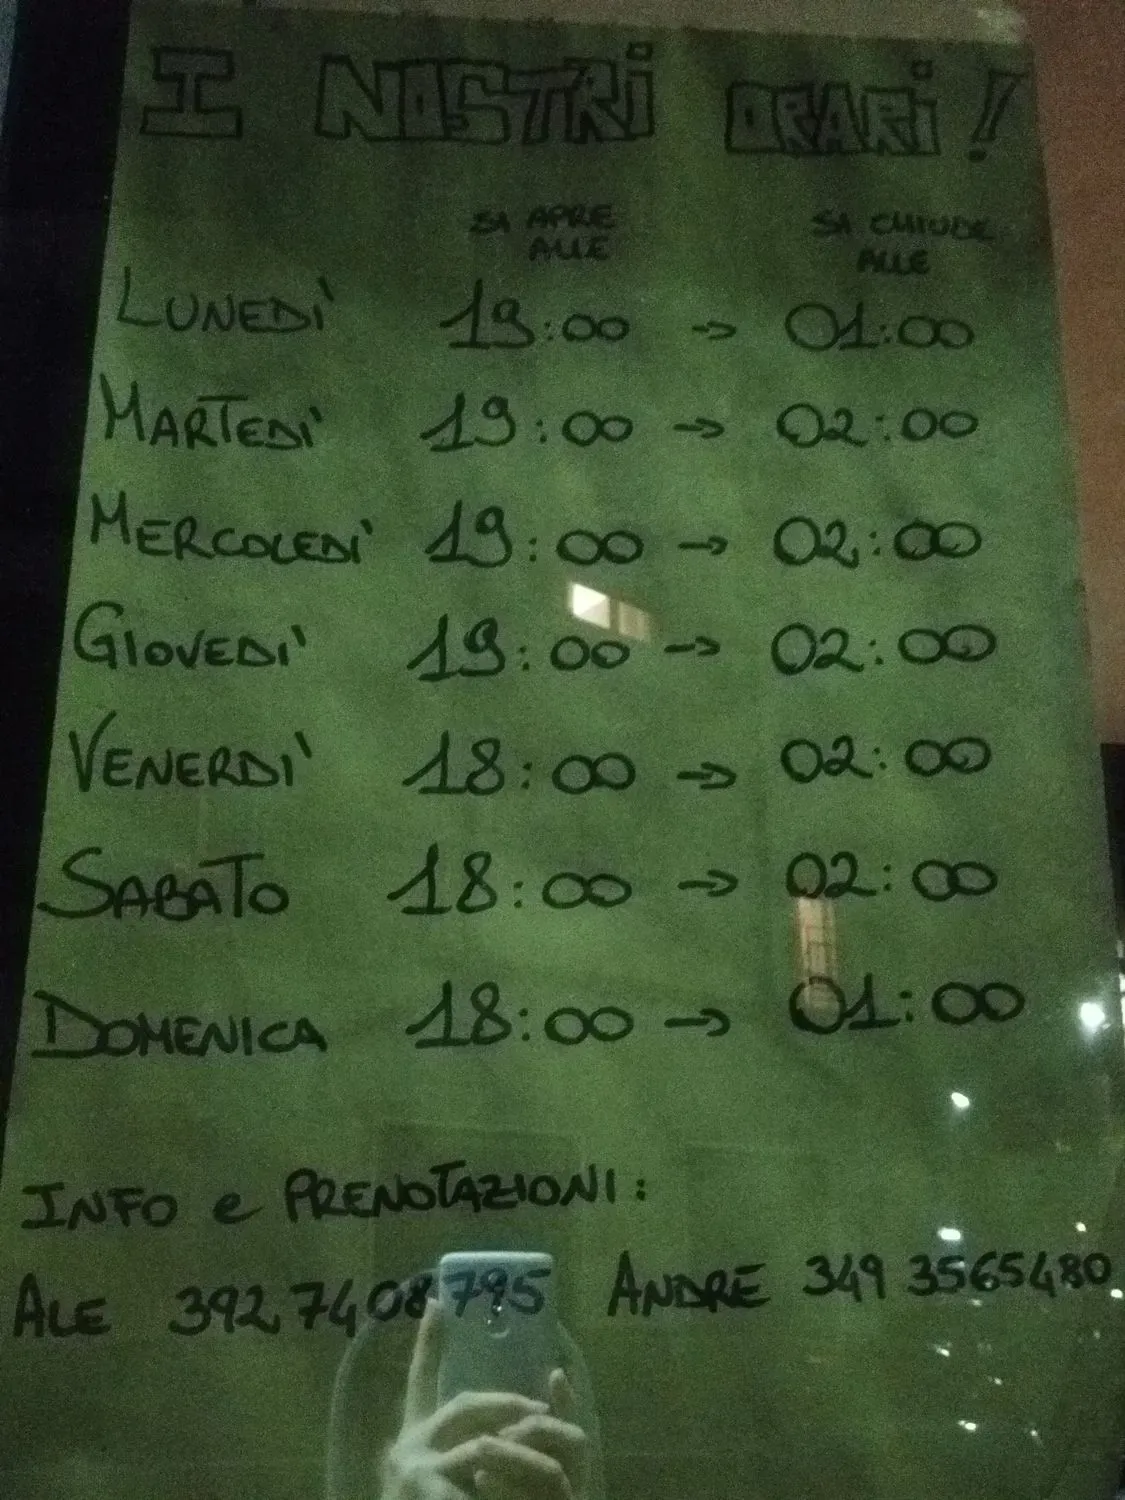 I NOSTRI ORARI!
SI APRE ALLE
SI CHIUDE ALLE
LUNEDI' 19:00 → 01:00
MARTEDI' 19:00 → 02:00
MERCOLEDI' 19:00 → 02:00
GIOVEDI' 19:00 → 02:00
VENERDI' 18:00 → 02:00
SABATO 18:00 → 02:00
DOMENICA 18:00 → 01:00
INFO e PRENOTAZIONI:
ALE 392 7408795 ANDRE 349 3565480